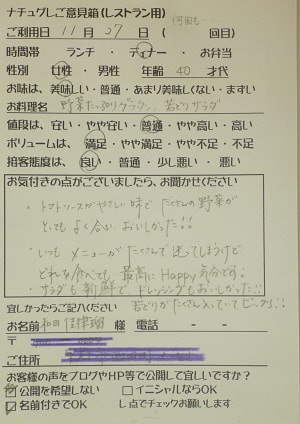 ナチュグレご意見箱(レストラン用)
何回も…
ご利用日 11月27日( 回目)
時間帯 ランチ・ディナー・お弁当
性別 女性・男性 年齢 40 才代
お味は、美味しい・普通・あまり美味しくない・まずい
お料理名 野菜たっぷりグラタン、若どりサラダ
値段は、安い・やや安い・普通・やや高い・高い
ボリュームは、満足・やや満足・やや不足・不足
接客態度は、良い・普通・少し悪い・悪い
お気付きの点がございましたら、お聞かせください
・トマトソースがやさしい味で たくさんの野菜が
とってもよく合い、おいしかった!!
・いつも メニューが たくさんで 迷ってしまうけど
どれを食べても、最高に Happy気分です!
・サラダも新鮮で ドレッシングもおいしかった!!
若どりがたくさん入っていてビックリ!!
宜しかったらご記入ください
お名前 和田 様 電話 - -
〒
ご住所
お客様の声をブログやHP等で公開して宜しいですか?
公開を希望しない イニシャルならOK
名前付きでOK レ点でチェックお願いします